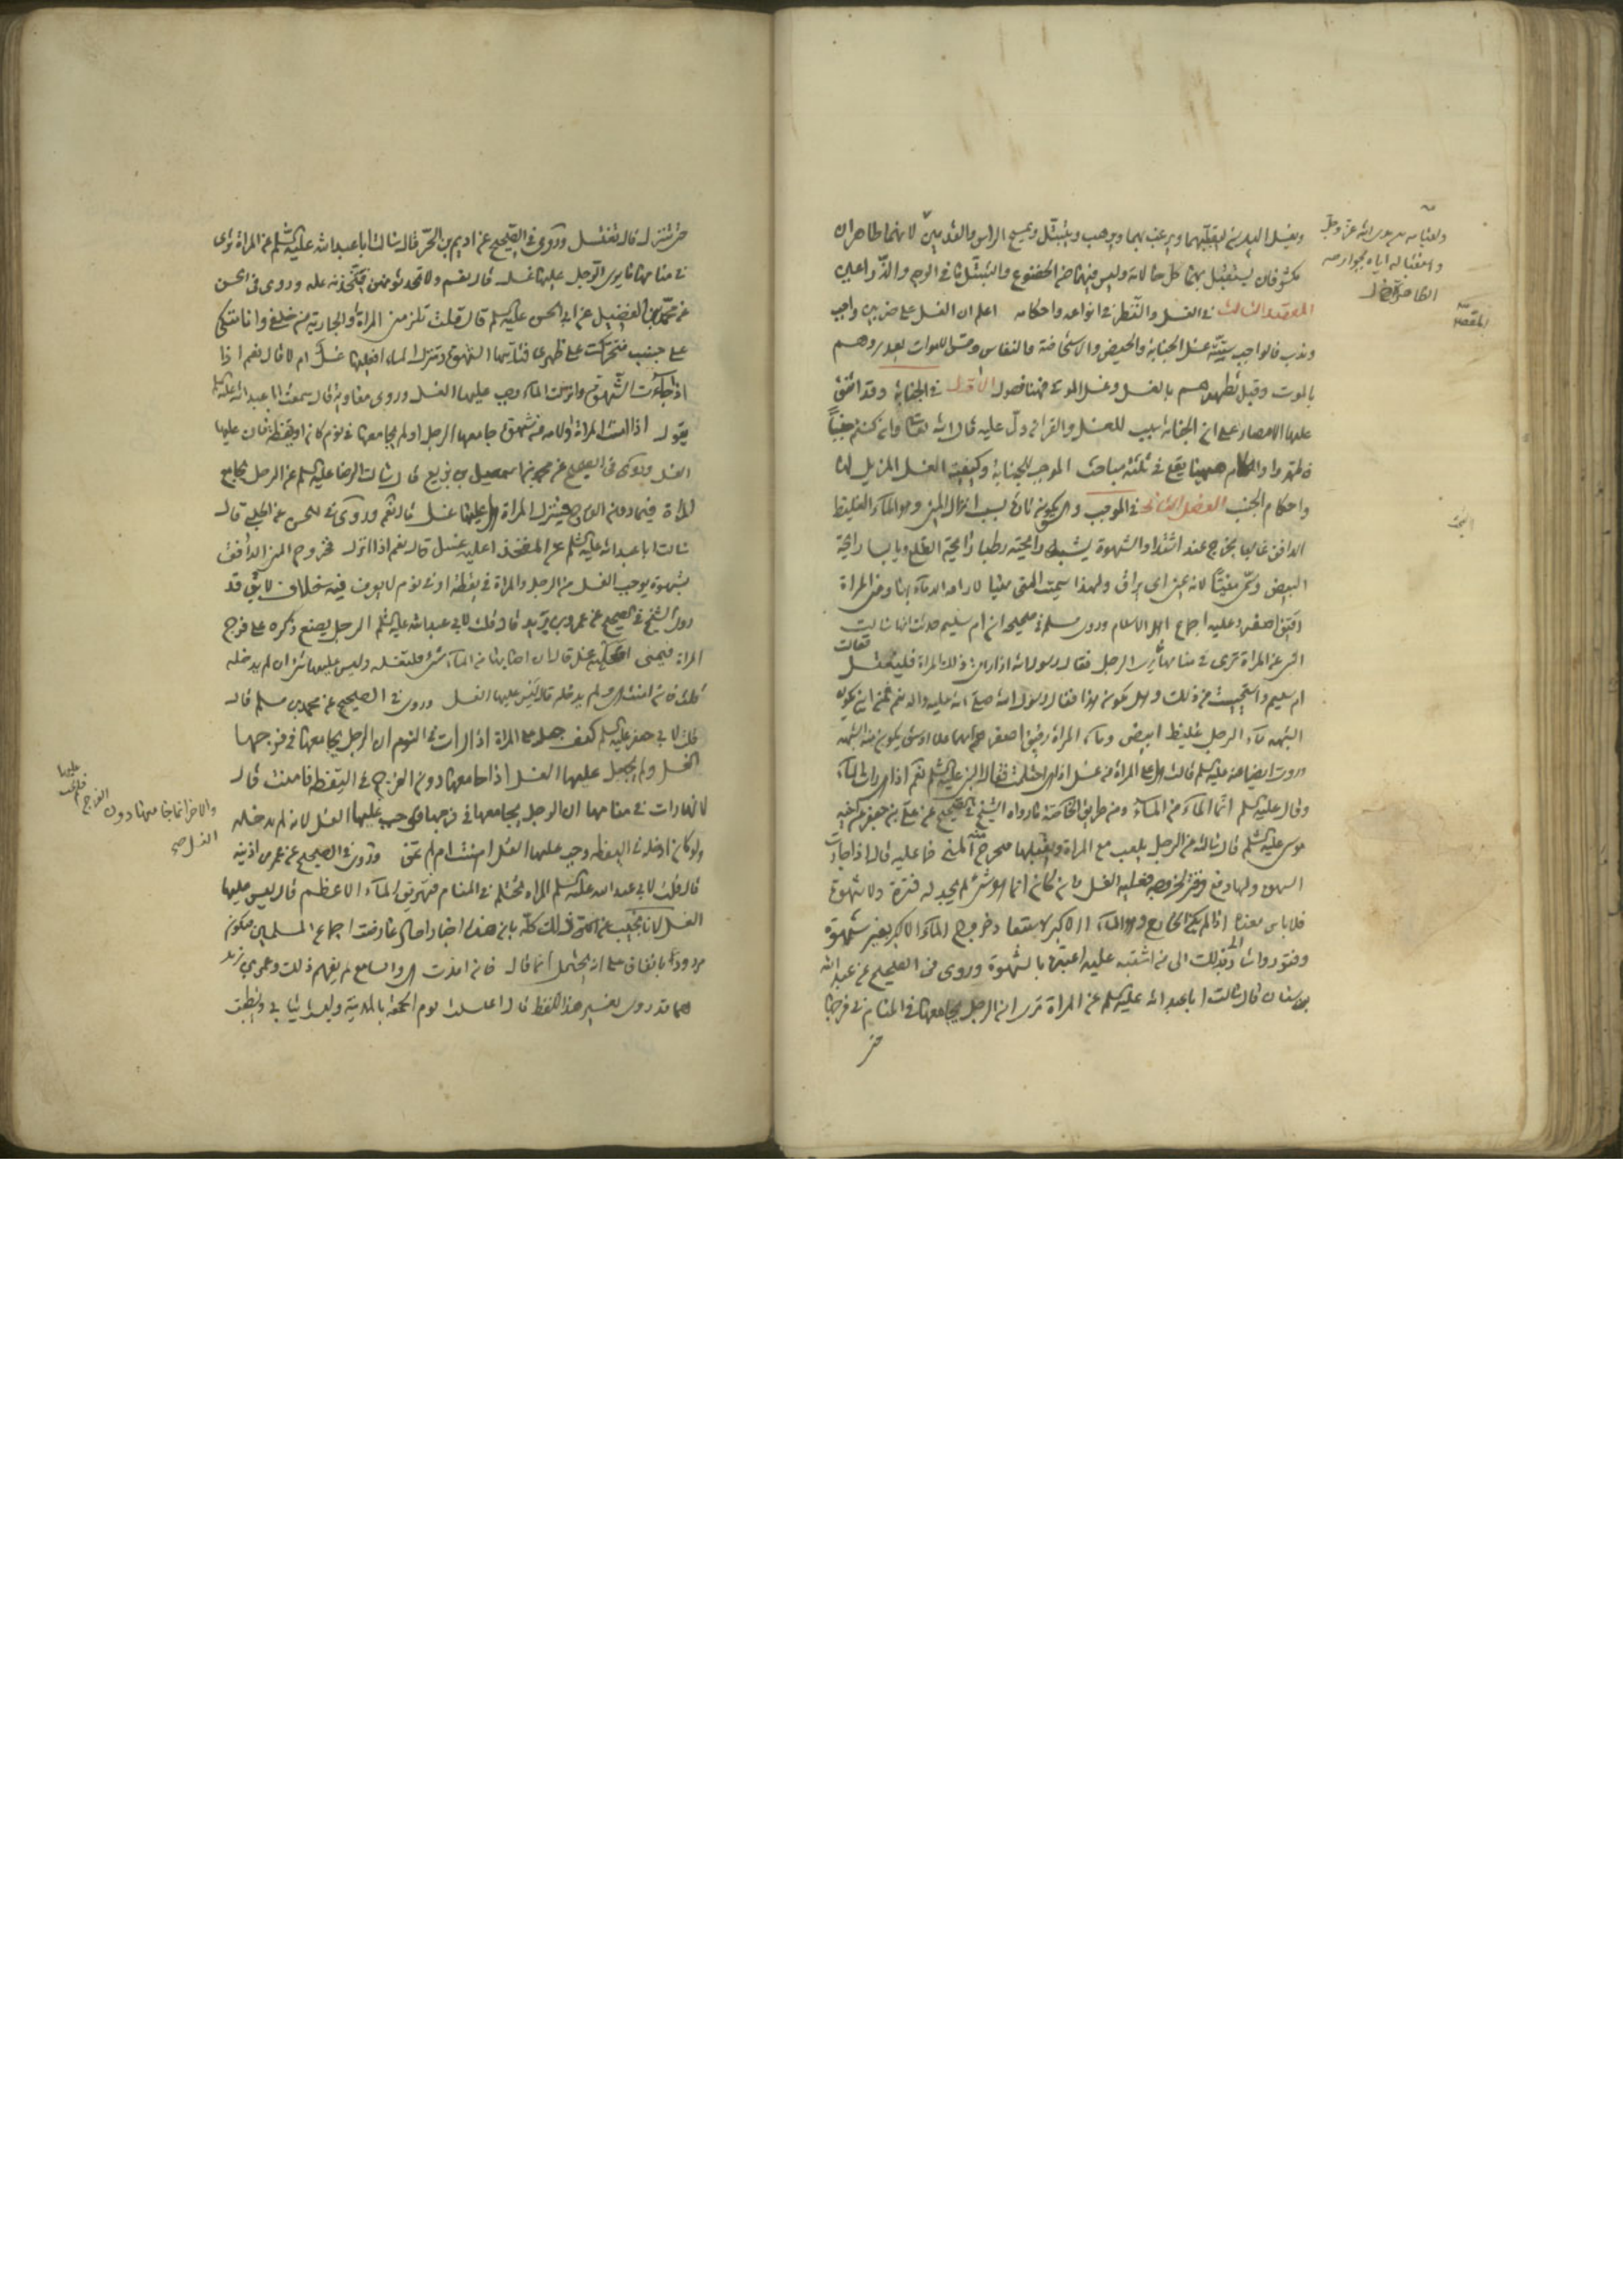 ويغسل اليدين ليقلبهما ويرغب بهما ويرهب ويتبتل ويمسح الراس والقدمين لانهما ظاهران
مكشوفان يستقبل بهما كل حالاته وليس فيهما من الخضوع والتبتل ما في الوجه والذراعين
المقصد الثالث في الغسل والنظر في انواعه واحكامه اعلم ان الغسل على ضربين واجب
وندب فالواجب ستة غسل الجنابة والحيض والاستحاضة والنفاس ومس الاموات بعد بردهم
بالموت وقبل تطهيرهم بالغسل وغسل الموتى فهنا فصول الاول في الجنابة وقد اتفق
علماء الامصار على ان الجنابة سبب للغسل والقران دل عليه قال الله تعالى وان كنتم جنبا
فاطهروا والكلام ههنا يقع في ثلثة مباحث الموجب للجنابة وكيفية الغسل المزيل لها
واحكام الجنب الفصل الاول في الموجب ويكون تارة بسبب انزال المني وهو الماء الغليظ
الدافق غالبا يخرج عند اشتداد الشهوة يشبه رايحته رطبا رايحة الطلع ويابسا رايحة
البيض وسمي منيا لانه يمنى اي يراق ولهذا سميت منى منيا لاراقة الدماء بها ومني المراة
رقيق اصفر وعليه اجماع اهل الاسلام وروى مسلم في صحيحه ان ام سليم حدثت انها سالت
النبي عن المراة ترى في منامها ما يرى الرجل فقال رسول الله اذا رات ذلك المراة فليغتسل فقالت
ام سليم واستحييت من ذلك وهل يكون هذا فقال رسول الله صلى الله عليه واله نعم فمن اين يكون
الشبه ماء الرجل غليظ ابيض وماء المراة رقيق اصفر فمن ايهما علا او سبق يكون منه الشبه
وروت ايضا عنه عليه السلام قالت هل على المراة من غسل اذا هي احتلمت فقال النبي عليه السلام نعم اذا رات الماء
وقال عليه السلام انما الماء من الماء ومن طريق الخاصة ما رواه الشيخ في الصحيح عن علي بن جعفر عن اخيه
موسى عليه السلام قال سالته عن الرجل يلعب مع المراة ويقبلها فيخرج منه المني فما عليه قال اذا جاءت
الشهوة ولها دفع وفتر لخروجه فعليه الغسل وان كان انما هو شئ لم يجد له فترة ولا شهوة
فلا باس معناه اذا لم يكن الخارج هو الماء الاكبر لاستبعاد خروج الماء الاكبر بغير شهوة
وفتور وانما ذلك الى من اشتبه عليه اعتبره بالشهوة وروى في الصحيح عن عبد الله
بن سنان قال سالت ابا عبد الله عليه السلام عن المراة ترى ان الرجل يجامعها في المنام في فرجها
حتى
حتى تنزل قال تغتسل وروى في الصحيح عن اديم بن الحر قال سالت ابا عبد الله عليه السلام عن المراة ترى
في منامها ما يرى الرجل عليها غسل قال نعم ولا تحدثوهن فيتخذنه علة وروى في الحسن
عن محمد بن الفضيل عن ابي الحسن عليه السلام قال قلت تلزمني المراة والجارية من خلفي وانا متكئ
على جنب فتتحرك على ظهري فتاتيها الشهوة وتنزل الماء افعليها غسل ام لا قال نعم اذا
جاءت الشهوة وانزلت الماء وجب عليها الغسل وروى معاوية قال سمعت ابا عبد الله عليه السلام
يقول اذا امنت المراة والامة من شهوة جامعها الرجل او لم يجامعها في نوم كان او يقظة فان عليها
الغسل وروى في الصحيح عن محمد بن اسمعيل بن بزيع قال سالت الرضا عليه السلام عن الرجل يجامع
المراة فيما دون الفرج فينزل المراة هل عليها غسل قال نعم وروى في الحسن عن الحلبي قال
سالت ابا عبد الله عليه السلام عن المفخذ اعليه غسل قال نعم اذا انزل فخروج المني الدافق
بشهوة يوجب الغسل من الرجل والمراة في يقظة او في نوم لا يعرف فيه خلاف لا يق قد
روى الشيخ في الصحيح عن عمر بن يزيد قال قلت لابي عبد الله عليه السلام الرجل يضع ذكره على فرج
المراة فيمني اعليها غسل قال ان اصابها من الماء شئ فلتغسله وليس عليها شئ الا ان يدخله
قلت فان امنت هي ولم يدخله قال ليس عليها الغسل وروى في الصحيح عن محمد بن مسلم قال
قلت لابي جعفر عليه السلام كيف جعل على المراة اذا رات في النوم ان الرجل يجامعها في فرجها
الغسل ولم يجعل عليها الغسل اذا جامعها دون الفرج في اليقظة فامنت قال
لانها رات في منامها ان الرجل يجامعها في فرجها فوجب عليها الغسل لانه لم يدخله
ولو كان ادخله في اليقظة وجب عليها الغسل امنت ام لم تمن وروى في الصحيح عن عمر بن اذينة
قال قلت لابي عبد الله عليه السلام المراة تحتلم في المنام فتهريق الماء الاعظم قال ليس عليها
الغسل لانا نجيب عن ذلك كله بان هذه اخبار احاد عارضت اجماع المسلمين فتكون
مردودة بالاتفاق على انه يحتمل انما قال فان امذت هي والسامع لم يفهم ذلك وعمر بن يزيد
هذا قد روى بغير هذا اللفظ قال اغتسلت يوم الجمعة بالمدينة ولبست ثيابي وتطيبت
والاخر انما جامعها دون الفرج فلم يجب عليها
الغسل صح